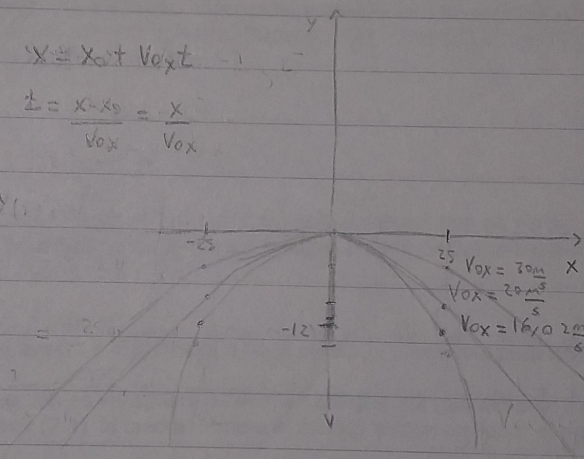 y
x = x₀ + V₀ₓt
t = x-x₀/V₀ₓ = x/V₀ₓ
-25
25
x
V₀ₓ = 30 m/s
V₀ₓ = 20 m/s
V₀ₓ = 16,02 m/s
-12